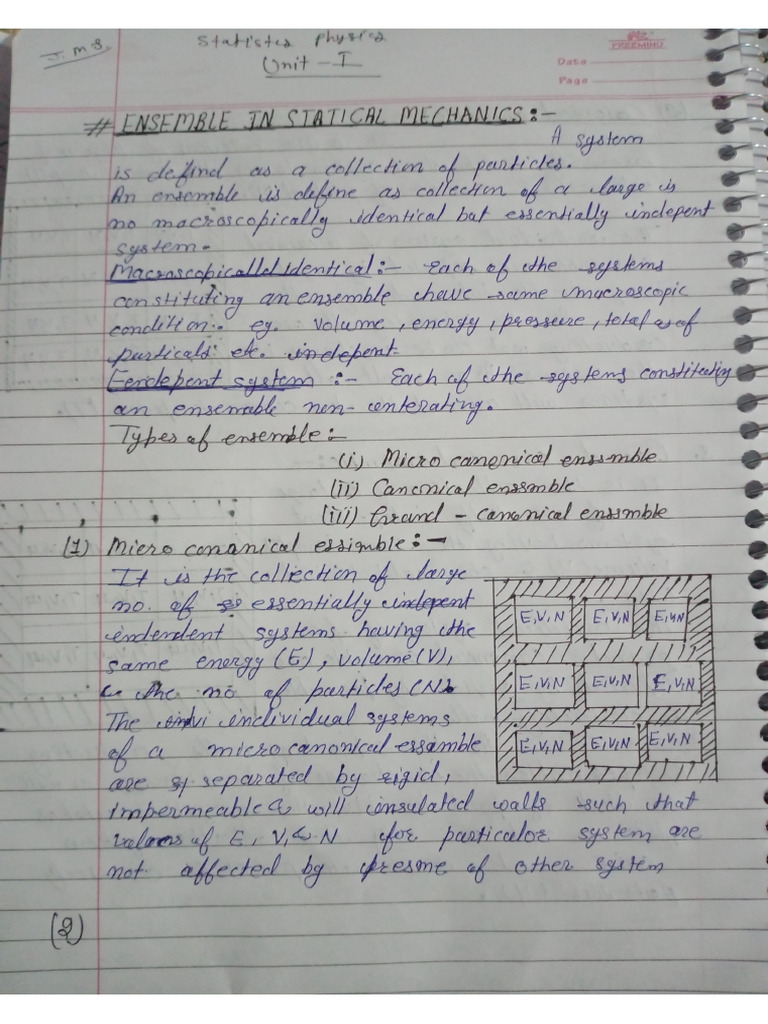 J.M.S.
Statistcs Physics
Unit - I
PREEMIHU
Date
Page
# ENSEMBLE IN STATICAL MECHANICS :-
A system
is defind as a collection of particles.
An ensemble is define as collection of a large is
no macroscopically identical but essentially indepent
system.
Macroscopicalled identical :- Each of the systems
constituting an ensemble have same macroscopic
condition. eg. volume, energy, pressure, total as of
particals etc. indepent
Eendepent system :- Each of the systems constituting
an ensemable non-enterating.
Types of ensemble :-
(i) Micro canonical enssmble
(ii) Canonical enssmble
(iii) Grand - canonical enssmble
(1) Micro cononical essimble :-
It is the collection of large
no. of es essentially indepent
endendent systems having the
same energy (E), volume (V),
& the no of particles (N).
The indvi individual systems
of a micro canonical essamble
are separated by rigid,
impermeable & will insulated walls such that
values of E, V, & N for particular system are
not affected by presme of other system
E,V,N E,V,N E,V,N
E,V,N E,V,N E,V,N
E,V,N E,V,N E,V,N
(2)